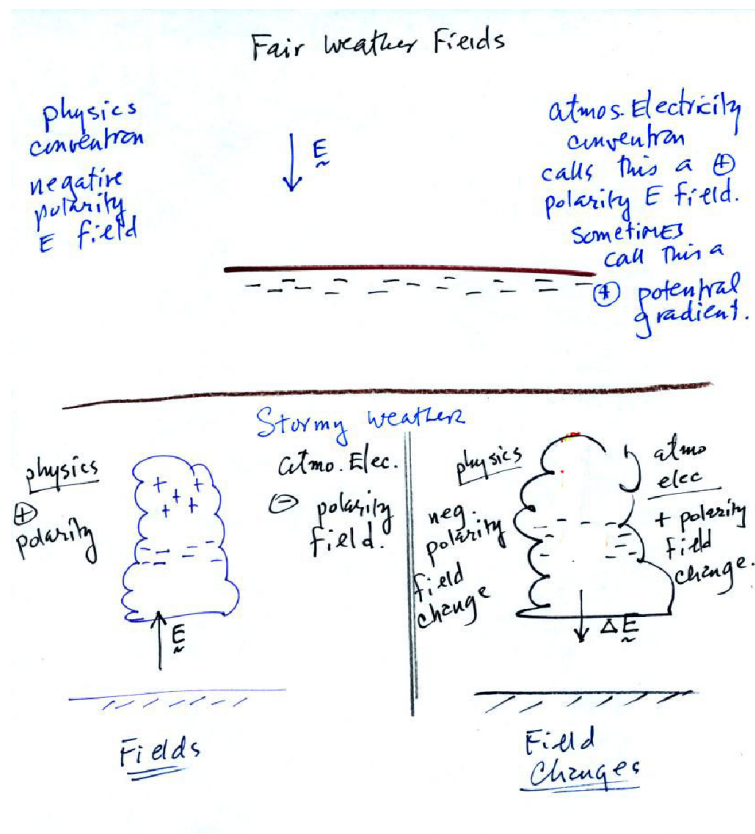 Fair Weather Fields
physics
convention
negative
polarity
E field
E
atmos. Electricity
convention
calls this a ⊕
polarity E field.
sometimes
call this a
⊕ potential
gradient.
Stormy Weather
physics
⊕
polarity
+ + + + +
E
Fields
atmo. Elec.
⊖ polarity
field.
physics
neg.
polarity
field
change
atmo
elec
+ polarity
field
change.
Δ E
Field
Changes